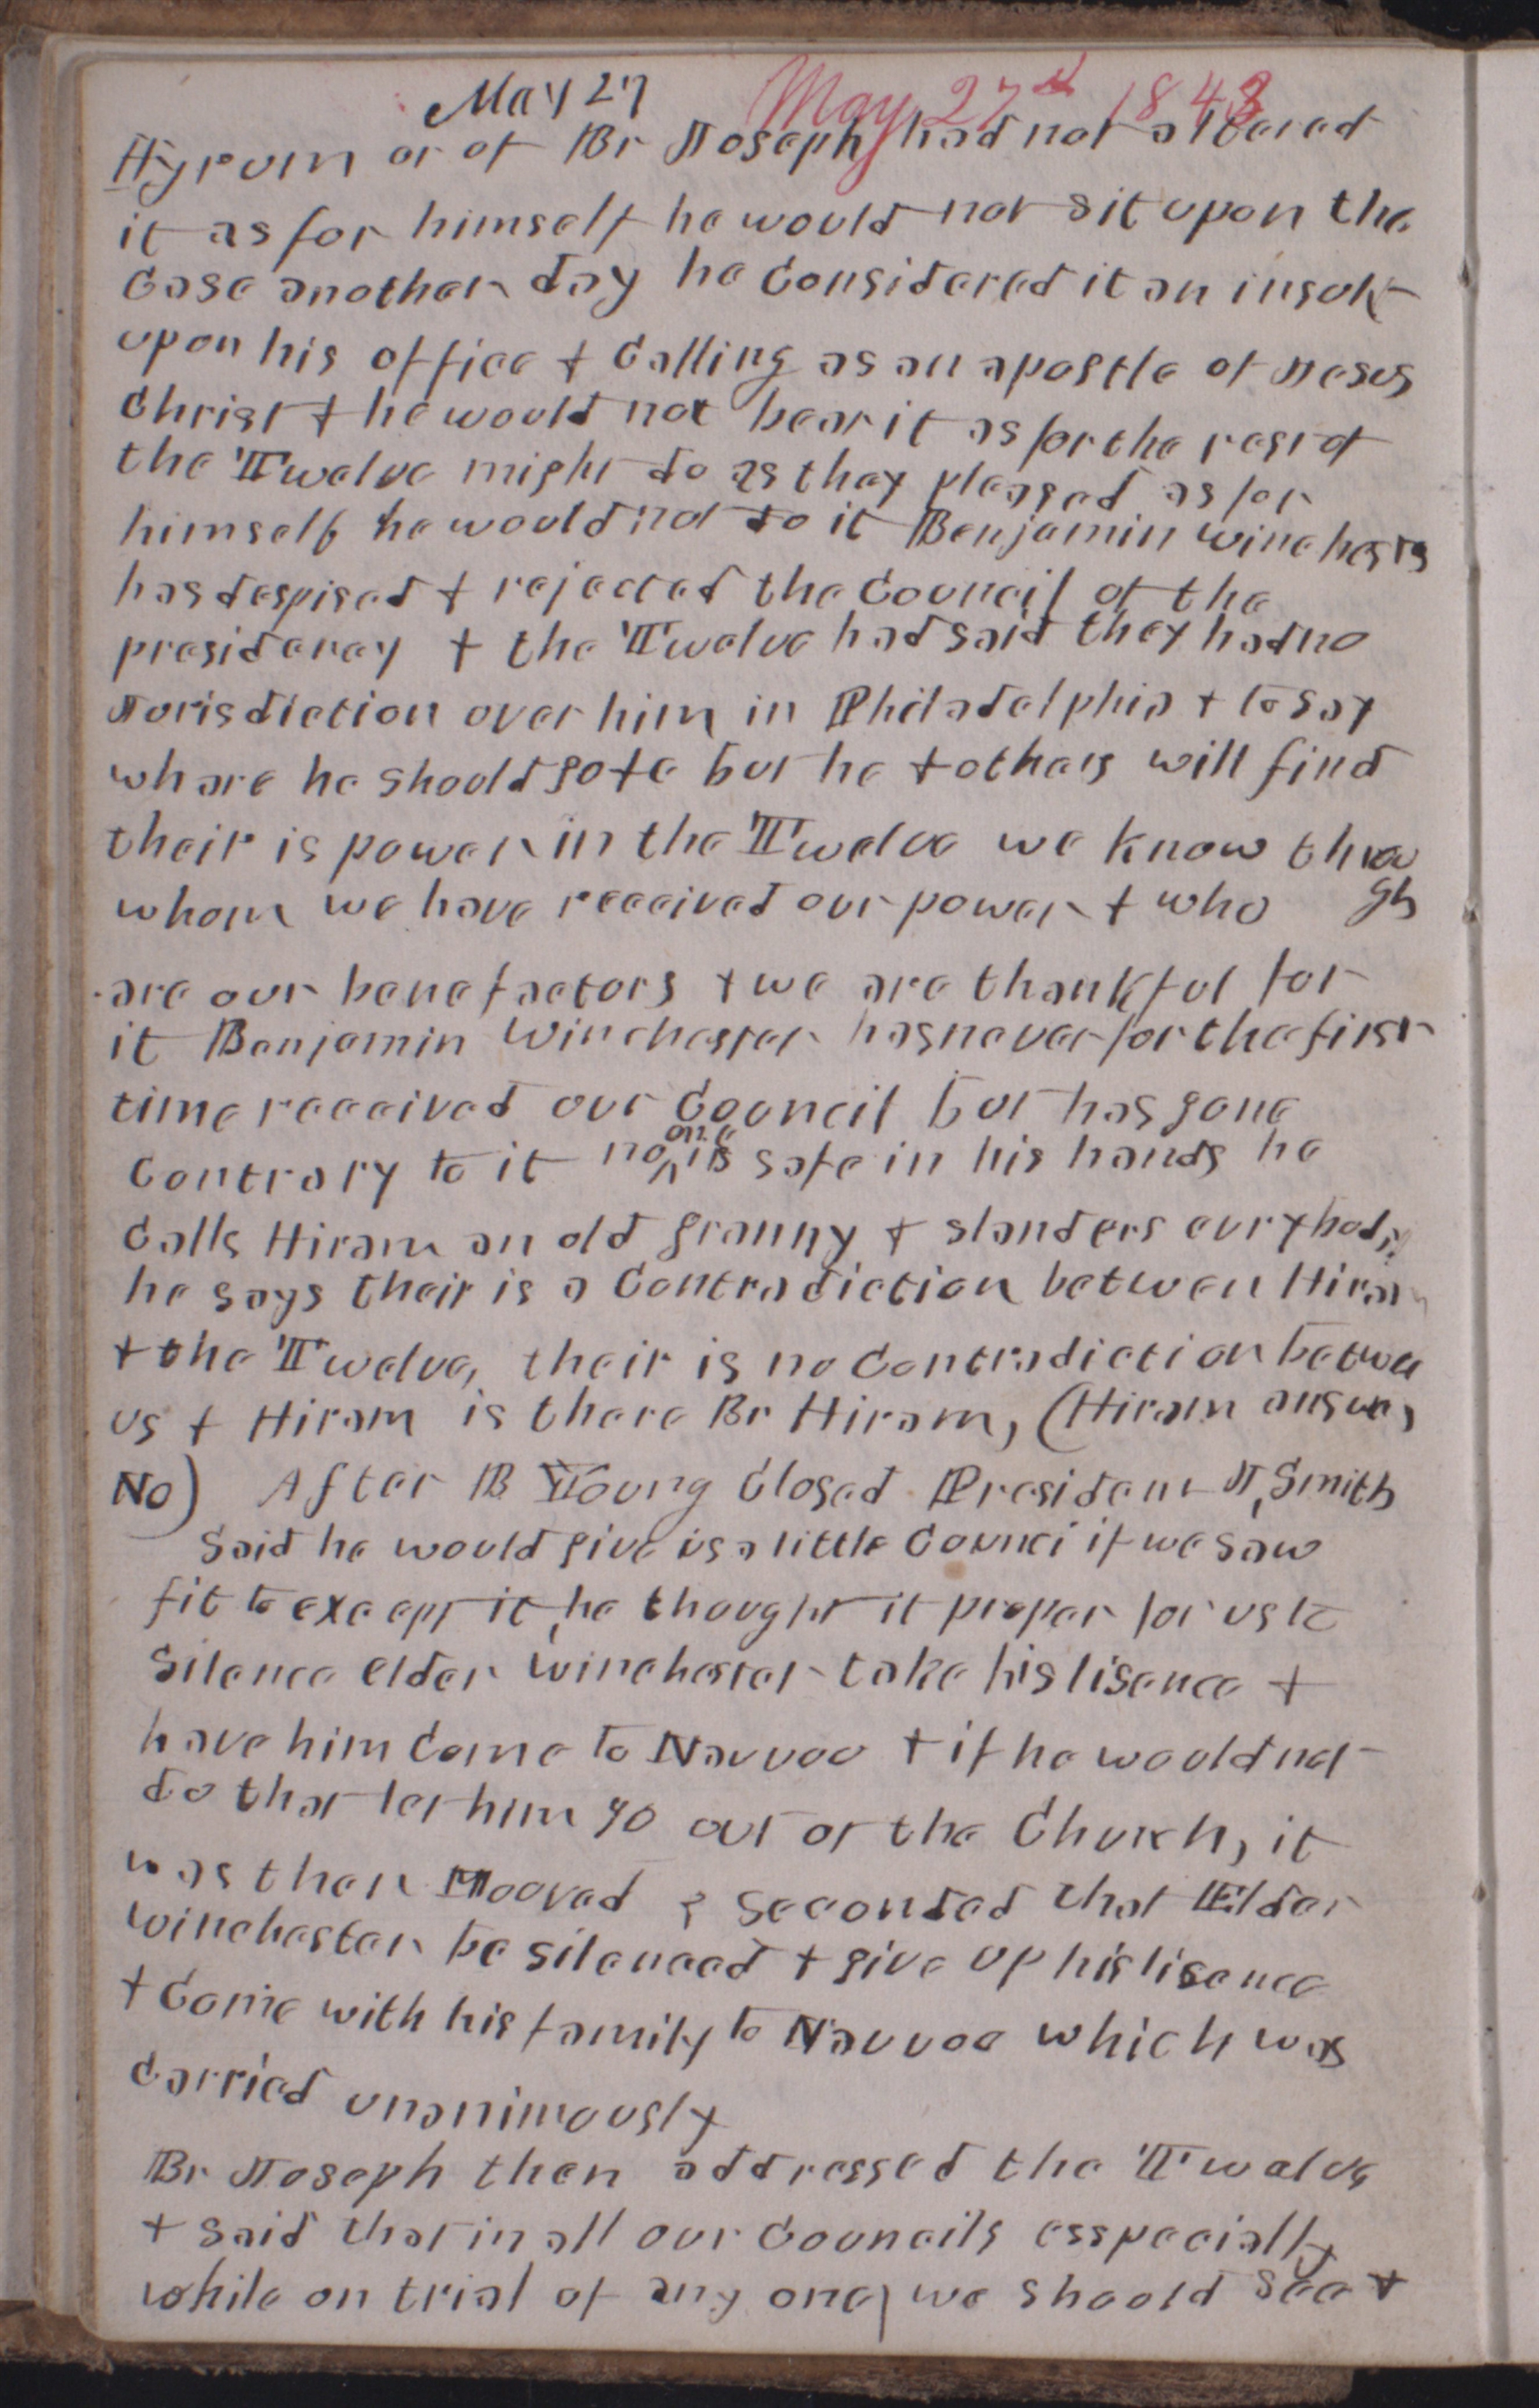 May 27 May 27th 1843
Hyrum or of Br Joseph had not altered
it as for himself he would not sit upon the
Case another day he Considered it an insult
upon his office & Calling as an apostle of Jesus
Christ & he would not bear it as for the rest of
the Twelve might do as they pleased as for
himself he would not do it Benjamin Winchests
has despised & rejected the Council of the
presideney & the Twelve had said they had no
Jurisdiction over him in Philadelphia & to say
whare he should gofe but he & others will find
their is power in the Twelve we know throu
whom we have received our power & who gh
are our benefactors & we are thankful for
it Benjamin Winchester has never for the first
time received our Council but has gone
Contrary to it no one is safe in his hands he
Calls Hiram an old granny & slanders evrybody
he says their is a Contradiction betwen Hiram
& the Twelve, their is no Contradiction betwee
us & Hiram is there Br Hiram, (Hiram answers
No) After B Young Closed President J, Smith
Said he would give us a little Counci if we saw
fit to except it, he thought it proper for us to
Silence elder Winchester take his lisence &
have him Come to Nauvoo & if he would not
do that let him go out of the Church, it
was then Mooved & seconded that Elder
Winchester be silenced & give up his lisence
& Come with his family to Nauvoo which was
Carried unanimously
Br Joseph then addressed the Twelve
& said that in all our Councils esspecially
while on trial of any one, we should see &